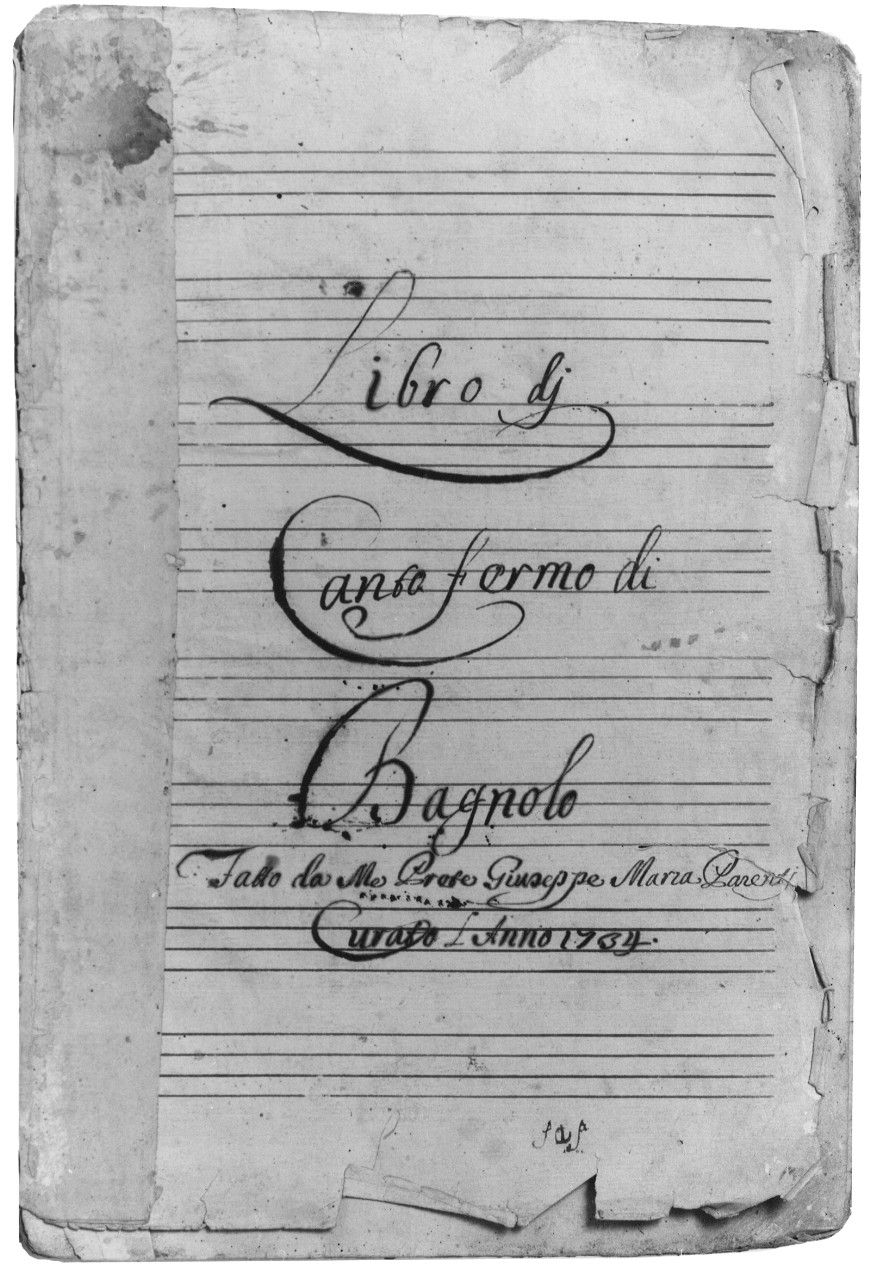 Libro dj
Canto fermo di
Bagnolo
Fatto da Me Prete Giuseppe Maria Parenti
Curato L Anno 1734.